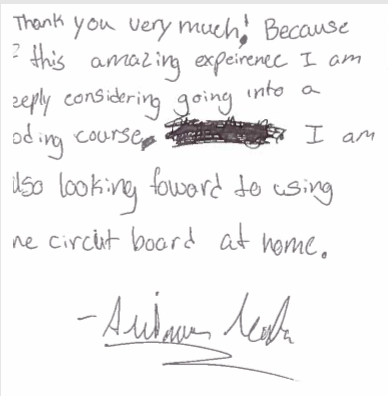 Thank you very much! Because
this amazing expeirence I am
eeply considering going into a
oding course. I am
lso looking foward to using
he circut board at home.